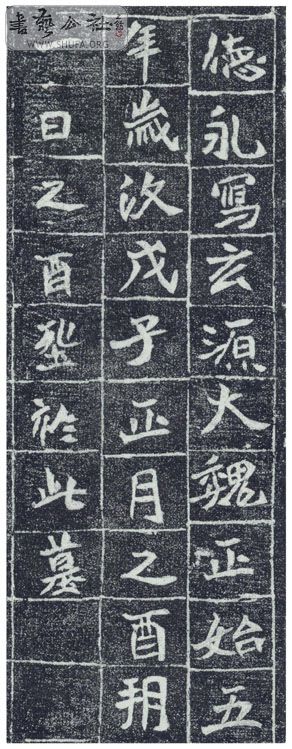 德永寫玄源大魏正始五
年歲次戊子正月之酉朔
日之酉塟於此墓
書藝公社
WWW.SHUFA.ORG